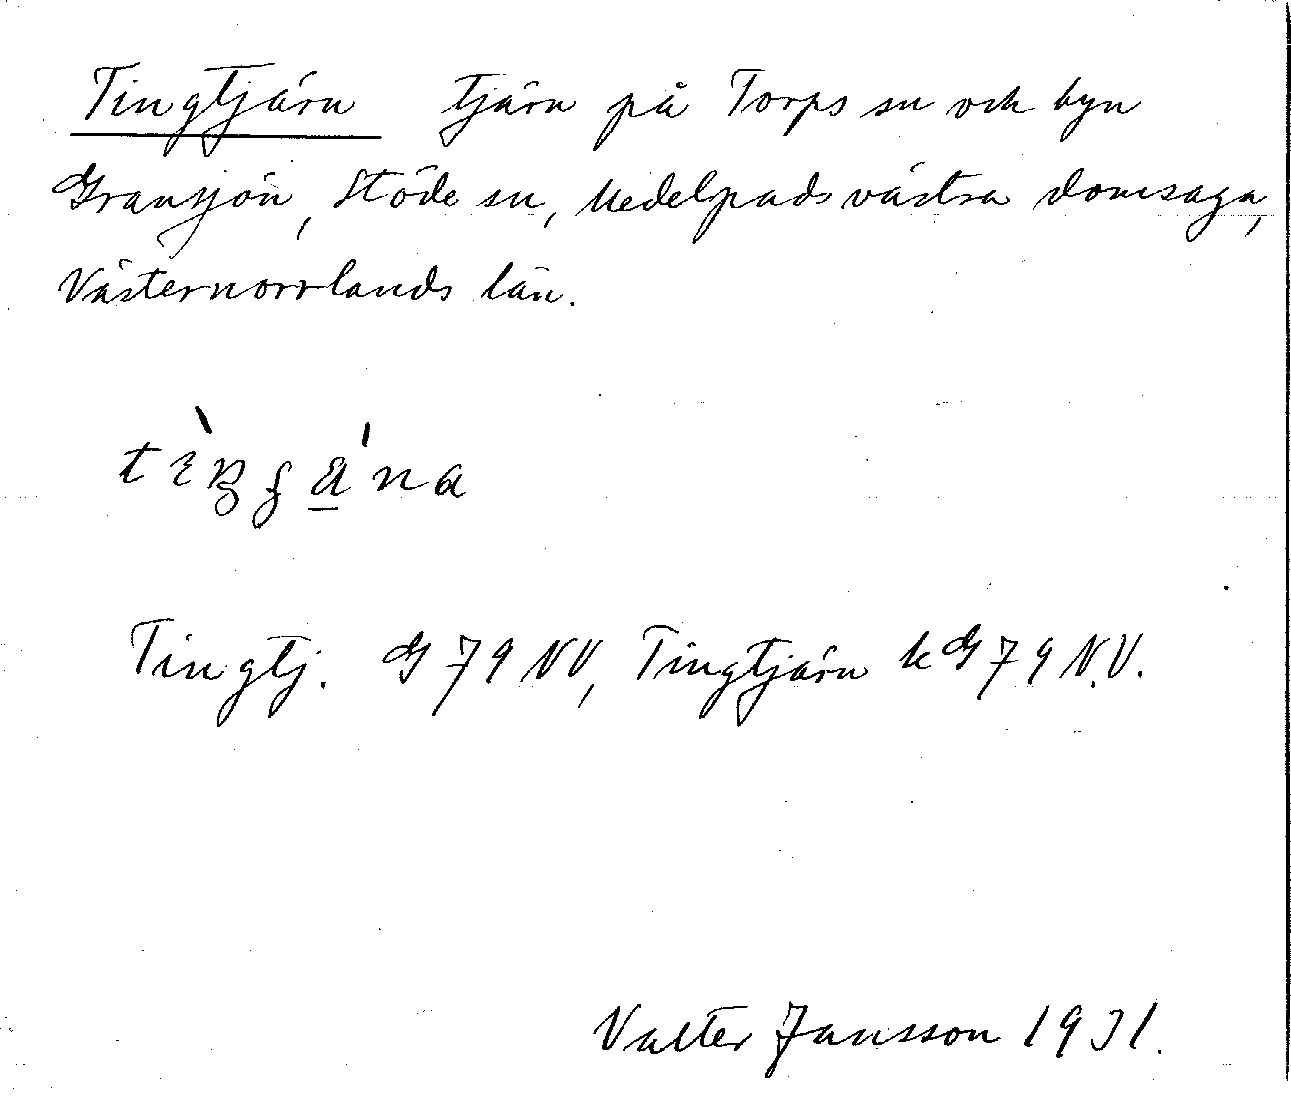 Tingtjärn tjärn på Torps sn och byn
Gransjön, Stöde sn, Medelpads västra domsaga,
Västernorrlands län.
Tingtj. G 79 NV, Tingtjärn k G 79 N.V.
Valter Jansson 1931.